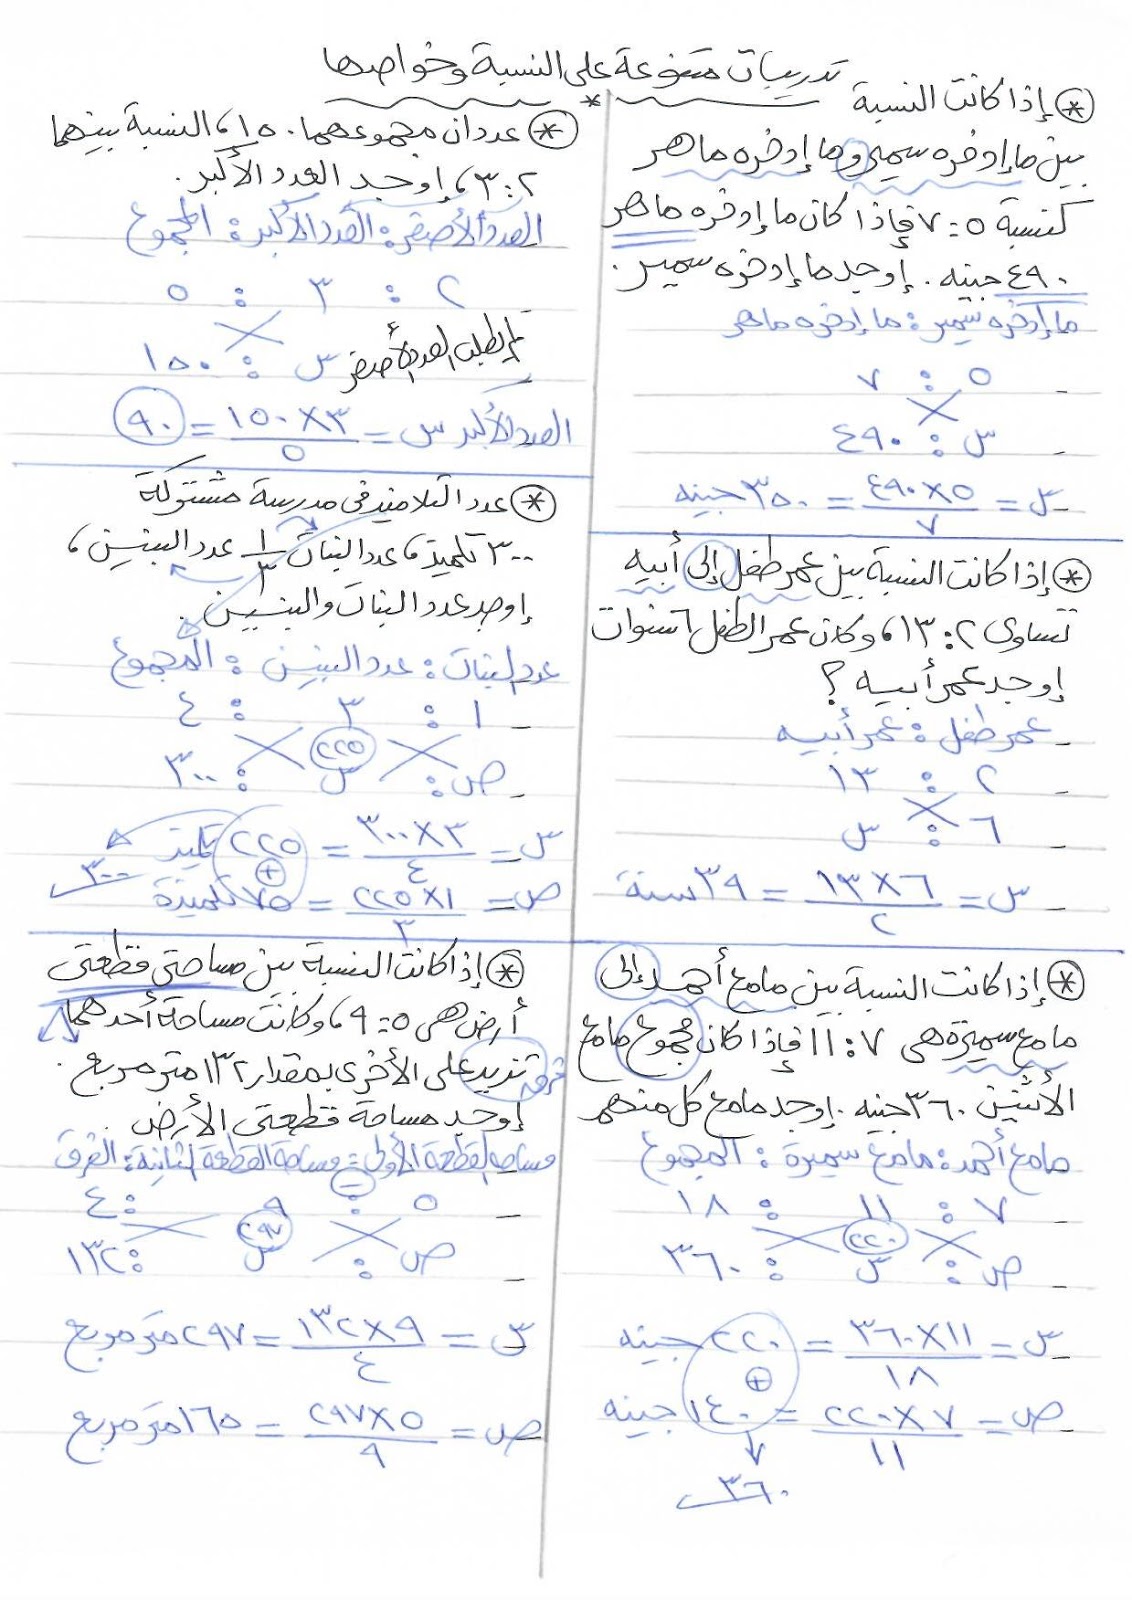 تدريبات متنوعة على النسبة وخواصها
* إذا كانت النسبة
بين ما إدخره سمير وما إدخره ماهر
كنسبة ٥ : ٧ فإذا كان ما إدخره ماهر
٤٩٠ جنيه . إوجد ما إدخره سمير .
ما إدخره سمير : ما إدخره ماهر
٥ : ٧
س : ٤٩٠
س = ٤٩٠×٥ / ٧ = ٣٥٠ جنيه
* إذا كانت النسبة بين عمر طفل إلى أبيه
تساوى ٢ : ١٣ ، وكان عمر الطفل ٦ سنوات
إوجد عمر أبيه ؟
عمر طفل : عمر أبيه
٢ : ١٣
٦ : س
س = ١٣×٦ / ٢ = ٣٩ سنة
* إذا كانت النسبة بين مامع أحمد إلى
مامع سميرة هى ٧ : ١١ فإذا كان مجموع مامع
الأثنين ٣٦٠ جنيه . إوجد مامع كل منهم
مامع أحمد : مامع سميرة : المجموع
٧ : ١١ : ١٨
ص : س : ٣٦٠
٢٢٠
س = ٣٦٠×١١ / ١٨ = ٢٢٠ جنيه
+
ص = ٢٢٠×٧ / ١١ = ١٤٠ جنيه
٣٦٠
* عددان مجموعهما ١٥٠ ، النسبة بينهما
٢ : ٣ ، إوجد العدد الأكبر .
العدد الأصغر : العدد الأكبر : المجموع
٢ : ٣ : ٥
س : ١٥٠
العدد الأصغر
العدد الأكبر س = ١٥٠×٣ / ٥ = ٩٠
* عدد التلاميذ فى مدرسة مشتركة
٣٠٠ تلميذ ، عدد البنات ١/٣ عدد البنين ،
إوجد عدد البنات والبنين .
عدد البنات : عدد البنين : المجموع
١ : ٣ : ٤
ص : س : ٣٠٠
٢٢٥
س = ٣٠٠×٣ / ٤ = ٢٢٥ تلميذ
+
ص = ٢٢٥×١ / ٣ = ٧٥ تلميذة
٣٠٠
* إذا كانت النسبة بين مساحتى قطعتى
أرض هى ٥ : ٩ ، وكانت مساحة أحدهما
تزيد على الأخرى بمقدار ١٣٢ متر مربع .
فرق
إوجد مساحة قطعتى الأرض .
مساحة القطعة الأولى : مساحة القطعة الثانية : الفرق
٥ : ٩ : ٤
ص : س : ١٣٢
٢٩٧
س = ١٣٢×٩ / ٤ = ٢٩٧ متر مربع
ص = ٢٩٧×٥ / ٩ = ١٦٥ متر مربع